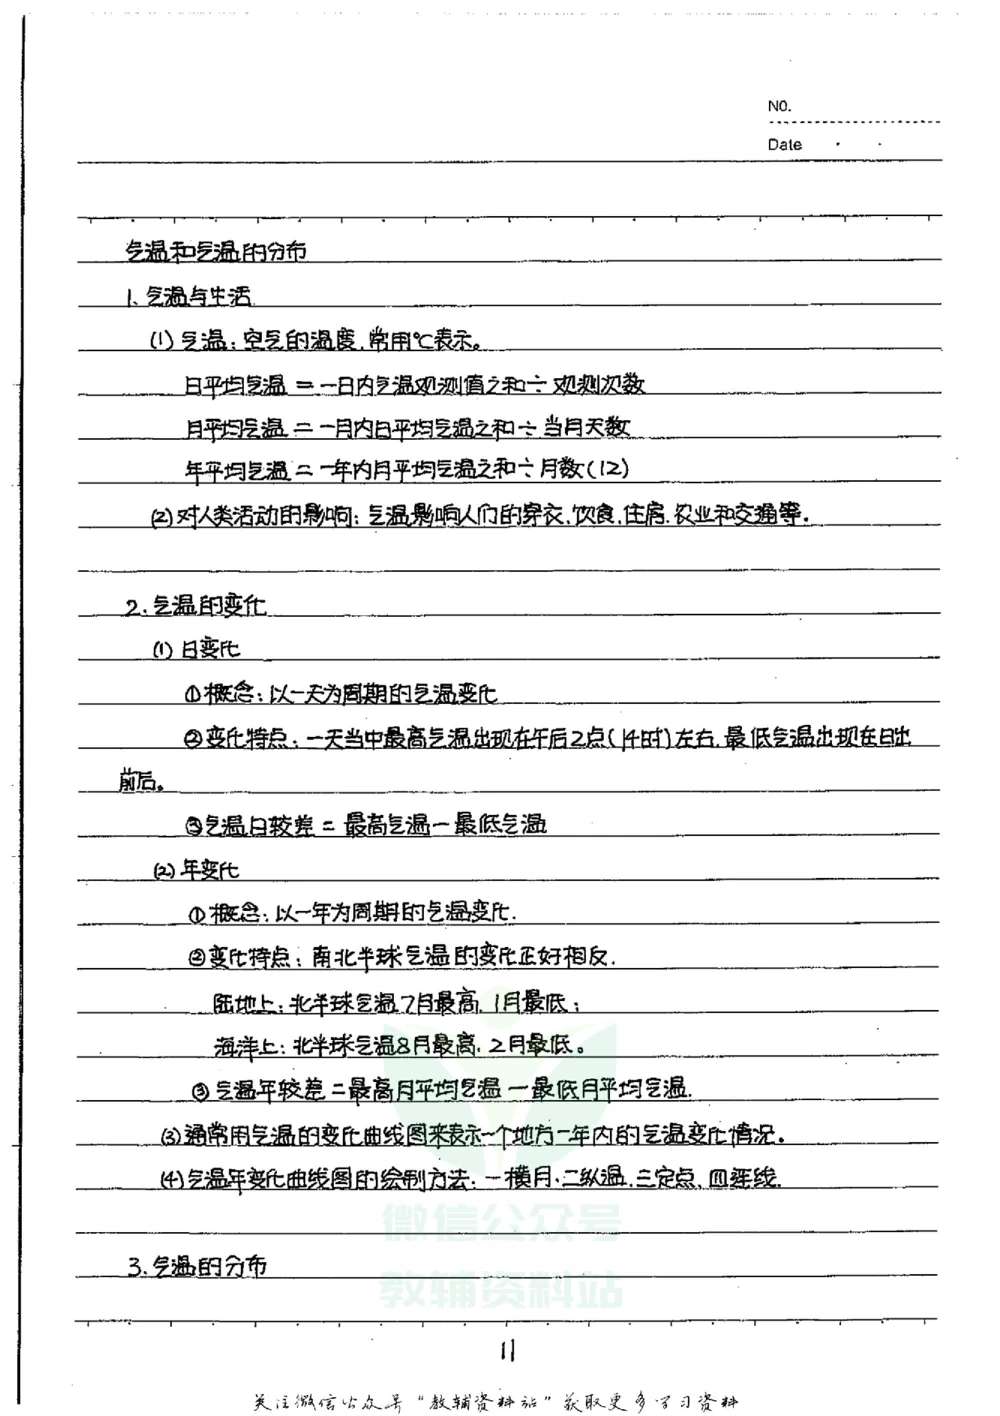 NO.
Date
气温和气温的分布
1、气温与生活
(1) 气温：空气的温度,常用℃表示。
日平均气温 = 一日内气温观测值之和÷观测次数
月平均气温 = 一月内日平均气温之和÷当月天数
年平均气温 = 一年内月平均气温之和÷月数(12)
(2)对人类活动的影响：气温影响人们的穿衣,饮食,住房,农业和交通等.
2.气温的变化
(1) 日变化
①概念：以一天为周期的气温变化
②变化特点：一天当中最高气温出现在午后2点(14时)左右,最低气温出现在日出
前后。
③气温日较差 = 最高气温－最低气温
(2)年变化
①概念：以一年为周期的气温变化.
②变化特点：南北半球气温的变化正好相反.
陆地上：北半球气温7月最高,1月最低；
海洋上：北半球气温8月最高,2月最低。
③气温年较差 = 最高月平均气温 － 最低月平均气温.
(3)通常用气温的变化曲线图来表示一个地方一年内的气温变化情况.
(4)气温年变化曲线图的绘制方法：一横月,二纵温,三定点,四连线.
微信公众号
3.气温的分布
教辅资料站
11
关注微信公众号“教辅资料站”获取更多学习资料